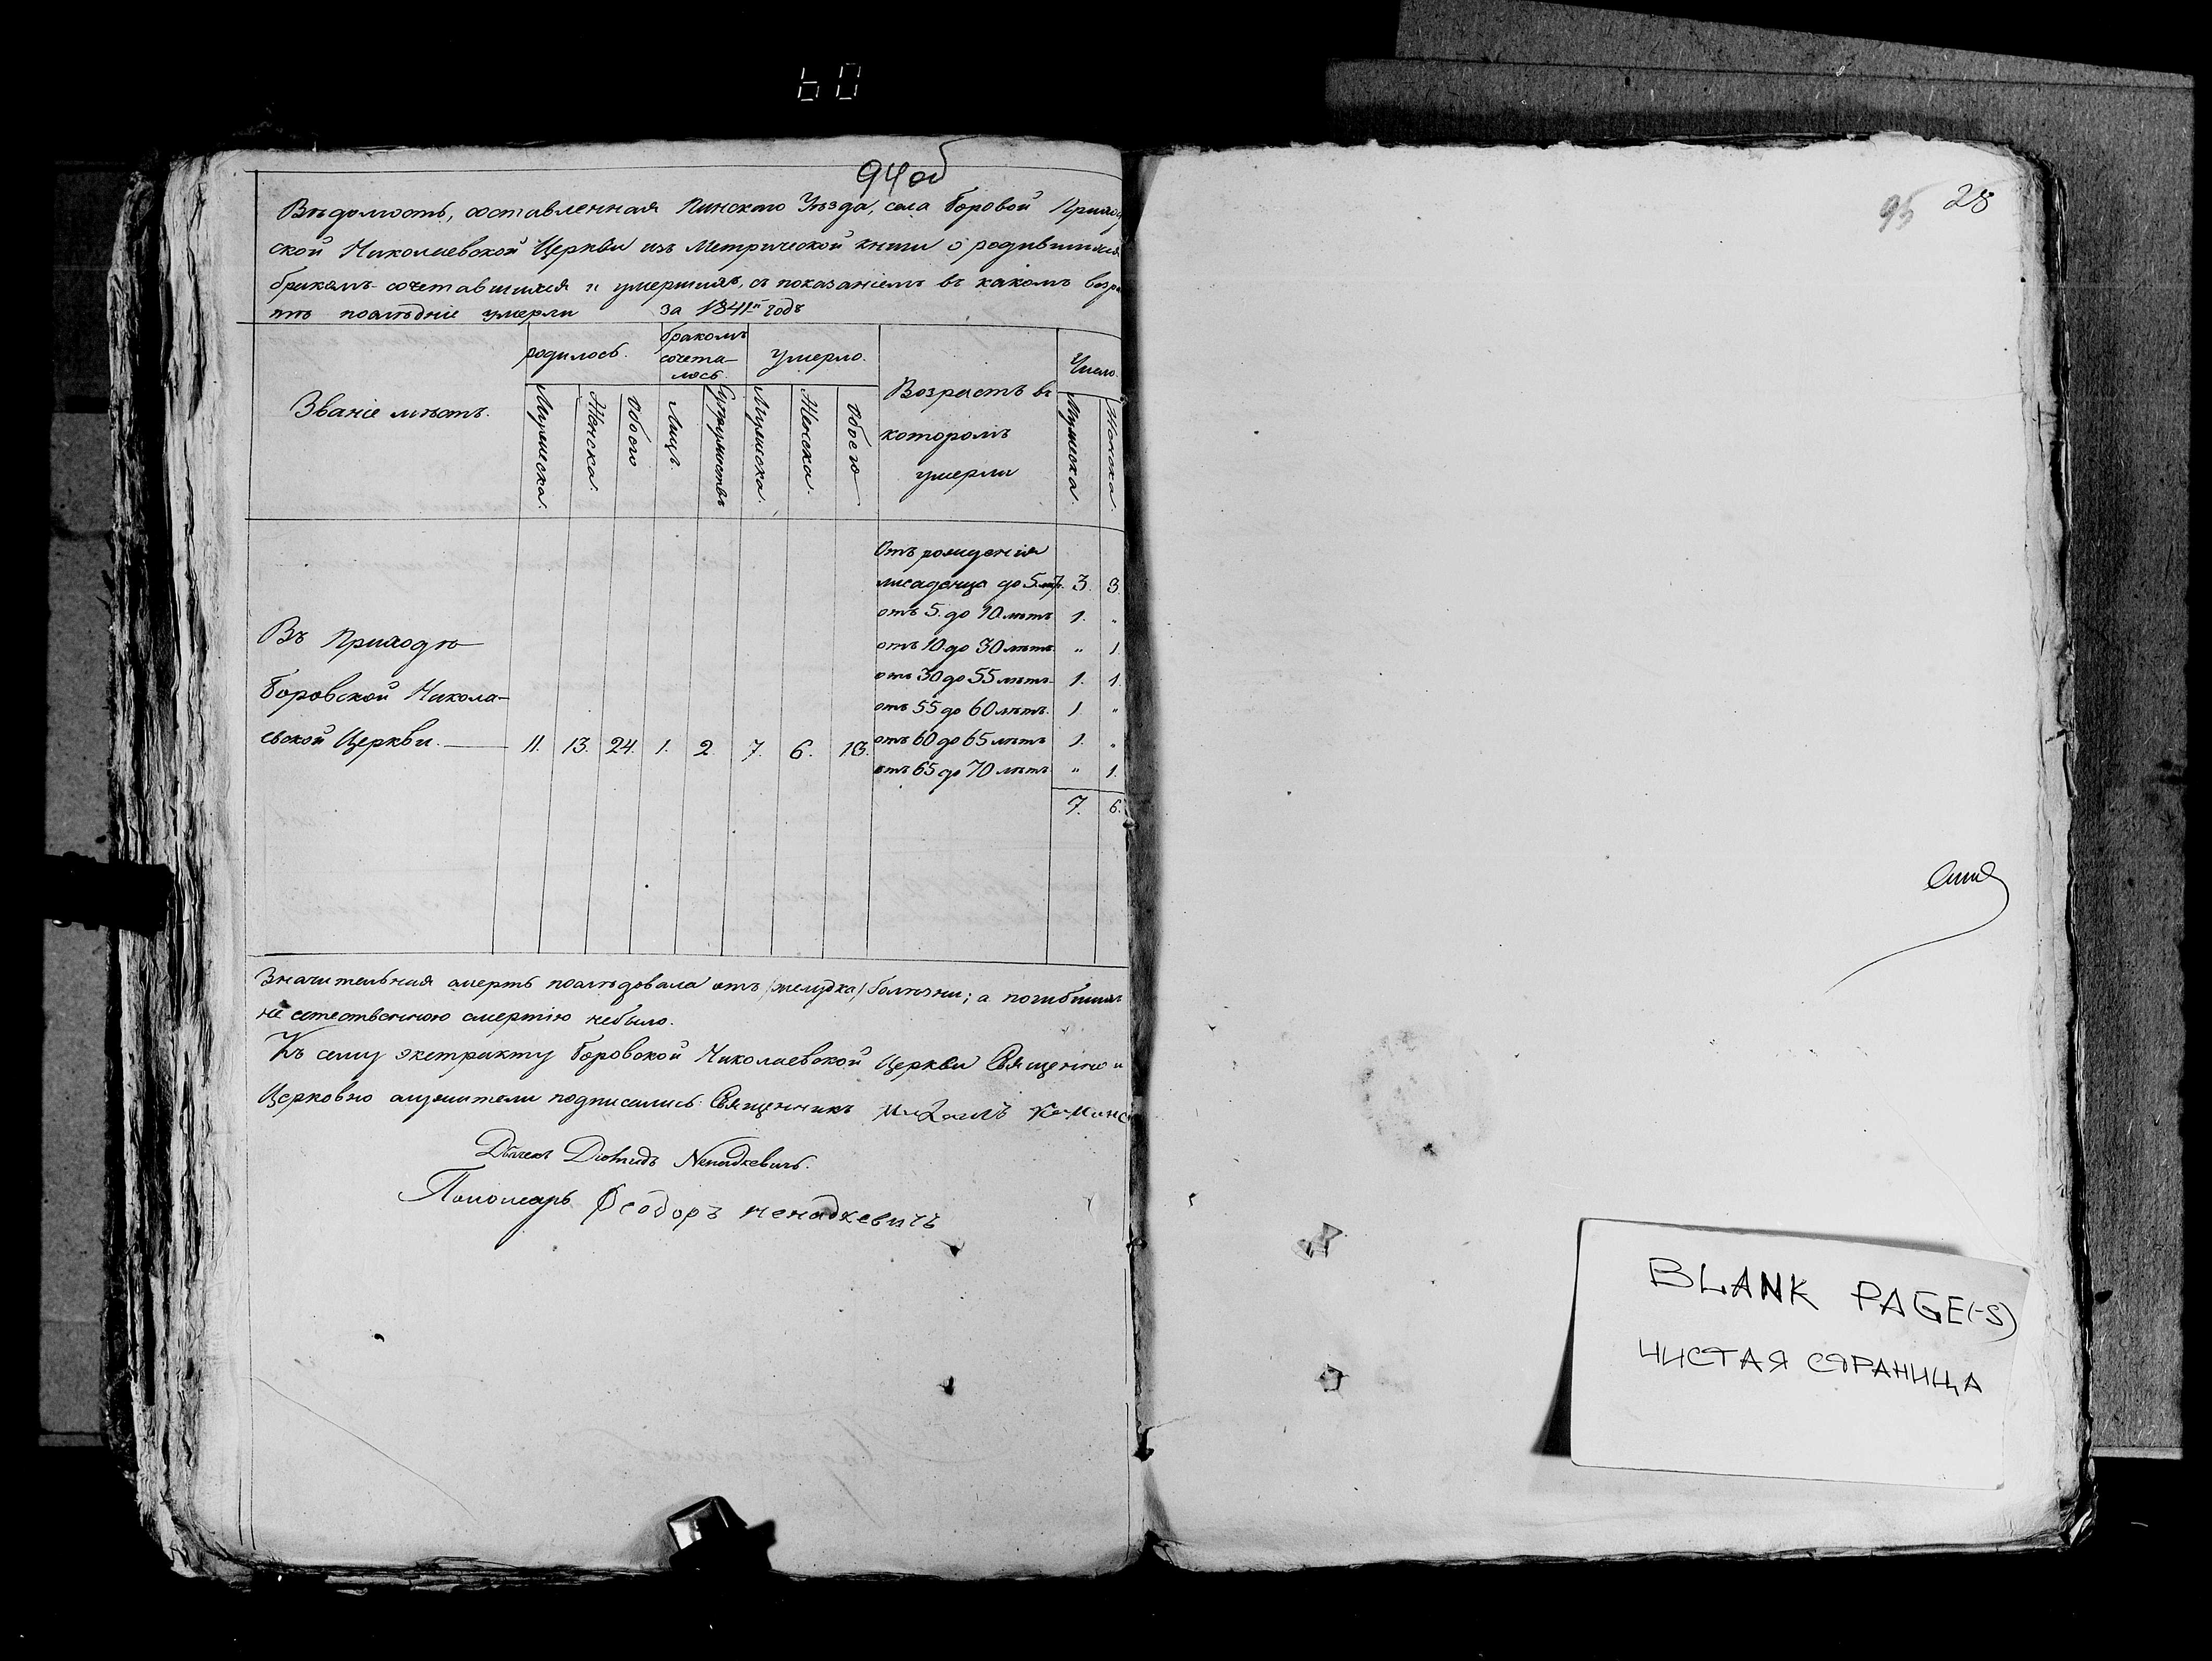 60
94 об
Вѣдомость, составленная Пинского Уѣзда, села Боровой Приход
ской Николаевской Церкви изъ Метрической книги о родившихся
бракомъ сочетавшихся и умершихъ, съ показаніемъ въ какомъ возра
стѣ послѣдніе умерли за 1841й годъ
Званіе мѣстъ.
родилось.
бракомъ
сочета-
лось.
умерло.
Возрастъ въ
которомъ
умерли
Число.
Мужеска.
Женска.
Обоего
Лицъ.
Супружествъ
Мужеска.
Женска.
Обоего
Мужеска.
Женска.
Отъ рожденія
младенца до 5 лѣт. 3. 3.
отъ 5. до 10 лѣтъ 1. "
отъ 10 до 30 лѣтъ. " 1.
отъ 30 до 55 лѣтъ. 1. 1.
отъ 55 до 60 лѣтъ. 1. "
отъ 60 до 65 лѣтъ 1. "
отъ 65 до 70 лѣтъ " 1.
7. 6.
Въ Приходѣ
Боровской Никола-
евской Церкви. 11. 13. 24. 1. 2. 7. 6. 13.
Значительная смерть послѣдовала отъ /желудка/ болѣзни; а погибшихъ
не естественною смертію небыло.
Къ сему экстракту Боровской Николаевской Церкви Священно и
Церковно служители подписались: Священникъ Михаилъ
Дьячекъ Ненадкевичъ.
Пономарь Феодоръ Ненадкевичъ
95 28
BLANK PAGE(-S)
ЧИСТАЯ СТРАНИЦА